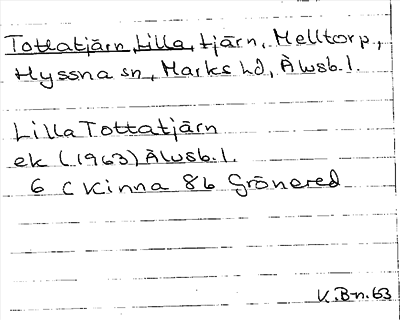 Tottatjärn, Lilla, tjärn, Melltorp,
Hyssna sn, Marks hd, Älvsb.l.
Lilla Tottatjärn
ek (1963) Älvsb.l.
6 C Kinna 8b Grönered
V.B-n. 63